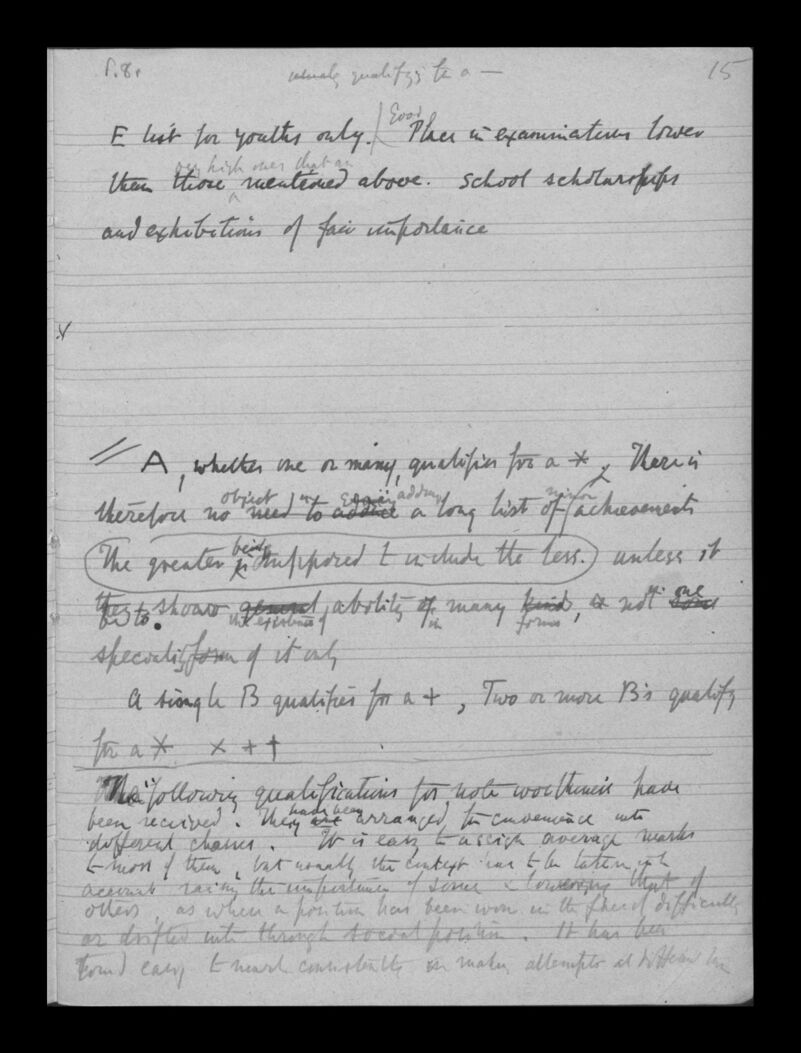 P.8. usually qualifying for a — 15
E list for youths only. Good Place in examinations lower
than those very high ones that are mentioned above. School scholarships
and exhibitions of fair importance
A, whether one or many, qualifies for a *. There is
therefore no object in adducing a long list of minor achievements
The greater being supposed to include the less. unless it
be to show the existence of ability in many forms, not one
speciality of it only
A single B qualifies for a +, Two or more B's qualify
for a * × + †
The following qualifications for noteworthiness have
been received. They have been arranged for convenience into
different classes. It is easy to assign average marks
to most of them, but usually the context has to be taken into
account raising the importance of some & lowering that of
others, as when a position has been won in the face of difficulty
or drifted into through social position. It has been
found easy to mark consistently in making attempts at different